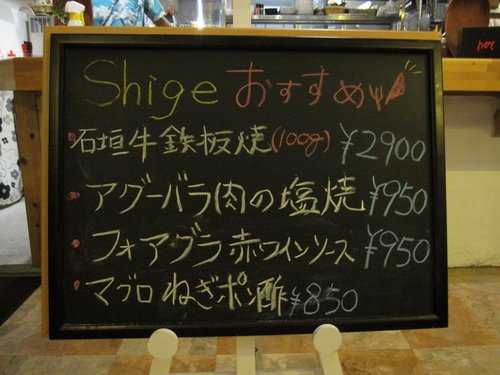 Shige おすすめ
・石垣牛鉄板焼(100g) ¥2900
・アグーバラ肉の塩焼 ¥950
・フォアグラ赤ワインソース ¥950
・マグロねぎポン酢 ¥850